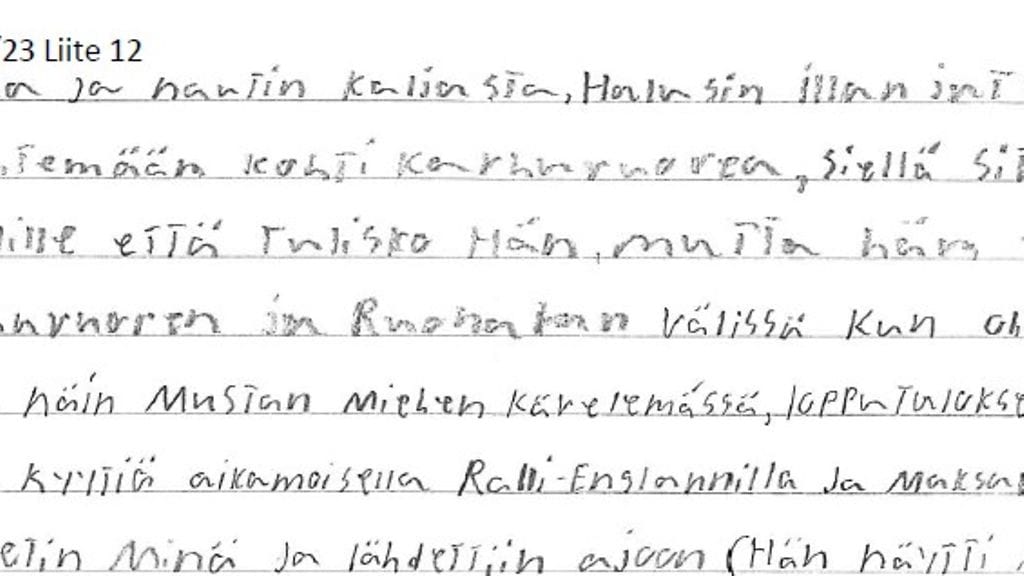 /23 Liite 12
a ja nautin kaljasta, Halusin illan
kohti Karhuvuorea, Siellä
että Tulisko Hän, mutta hän
ja Ruonatan välissä Kun
näin Mustan miehen kävelemässä, lopputulokse
kyytiä aikamoisella Ralli-Englannilla Ja Maksa
Minä Ja lähdettiin ajaan (Hän näytti